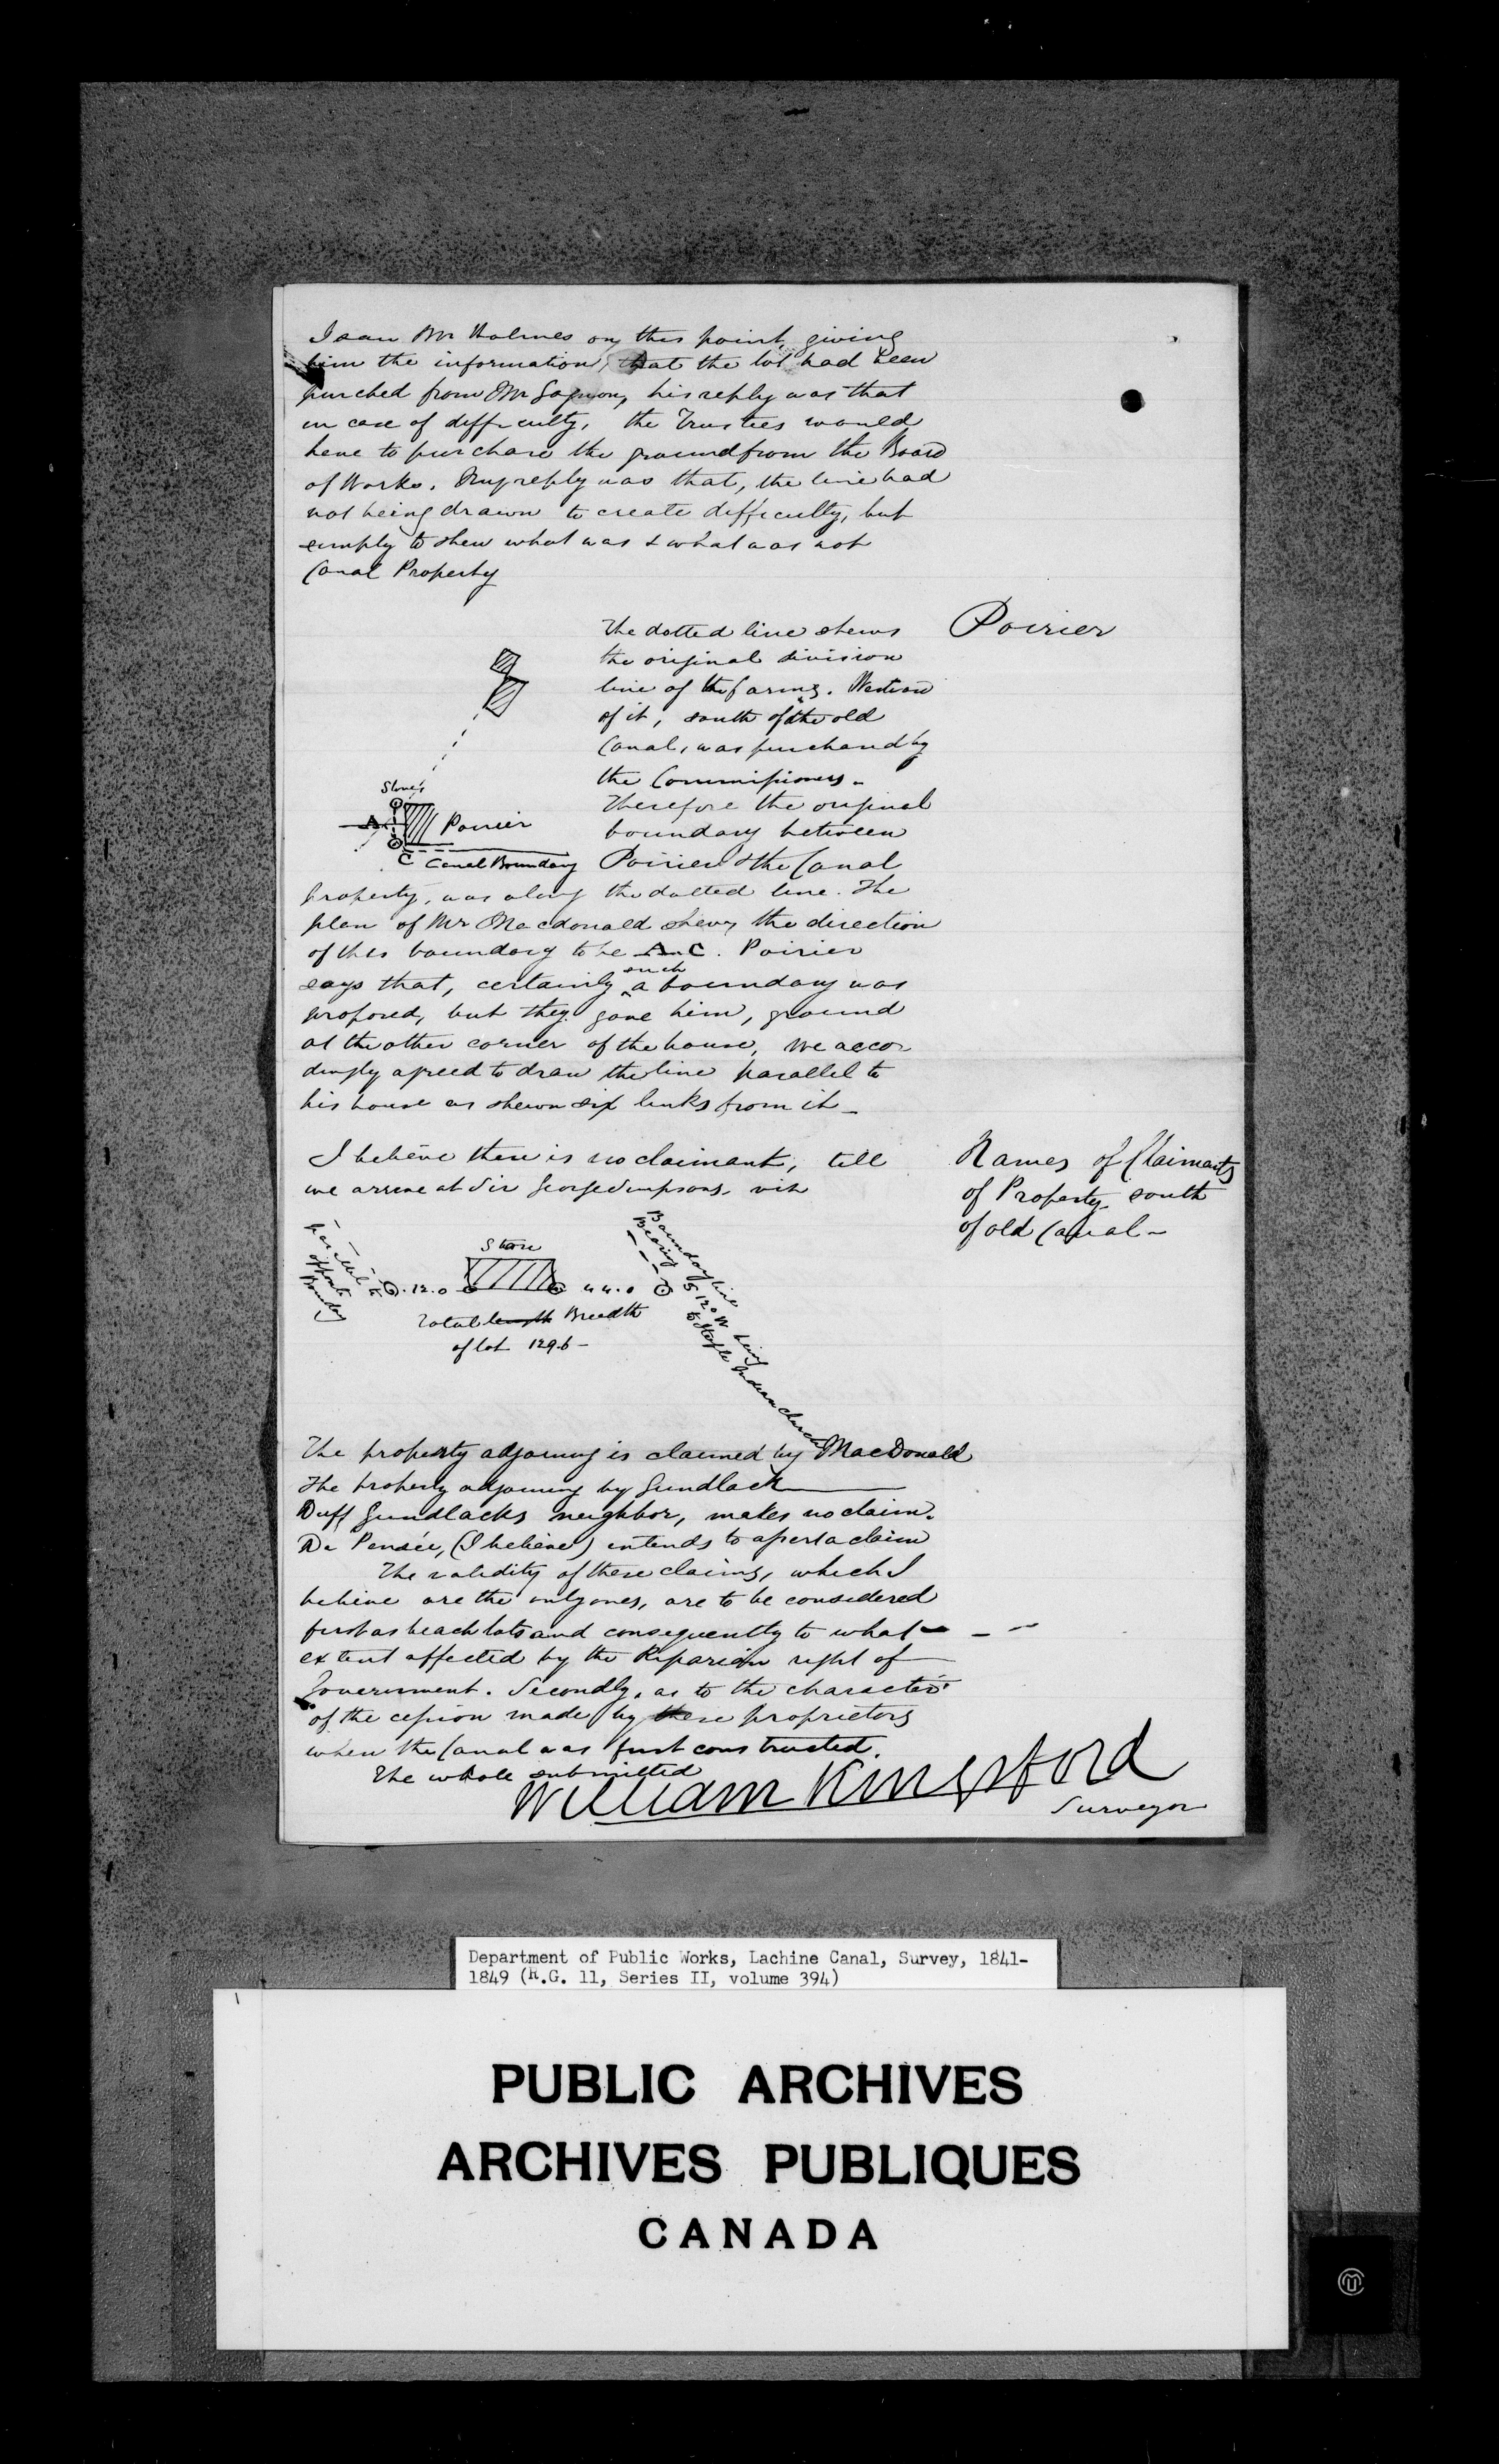 I saw Mr Holmes on this point, giving
him the information, that the lot had been
purched from Mr Gagnon, his reply was that
in case of difficulty, the Trustees would
have to purchase the ground from the Board
of Works. My reply was that, the line had
not being drawn to create difficulty, but
simply to shew what was & what was not
Canal Property
Poirier
The dotted line shews
the original division
line of the farms. Westward
of it, south of the old
Canal, was purchased by
the Commissioners.
Therefore the original
boundary between
Poirier & the Canal
Stones
A
Poirier
C Canal Boundary
property, was along the dotted line. The
plan of Mr Macdonald shews the direction
of this boundary to be A C. Poirier
says that, certainly such a boundary was
proposed, but they gave him, ground
at the other corner of the house, we accor
dingly agreed to draw the line parallel to
his house as shewn six links from it_
Names of Claimants
of Property south
of old Canal_
I believe there is no claimant, till
we arrive at Sir George Simpsons, viz
parallel to
opposite
Boundary
Store
12.0
44.0
Total length Breadth
of lot 129.6_
Boundary line
Bearing S 12° W being
to Steeple Indian church
The property adjoining is claimed by MacDonald
The property adjoining by Gundlack
Duff Gundlacks neighbor, makes no claim.
De Pensée, (I believe) intends to assert a claim
The validity of these claims, which I
believe are the only ones, are to be considered
first as beach lots and consequently to what
extent affected by the Riparian right of
Government. Secondly, as to the character
of the cession made by these proprietors
when the Canal was first constructed.
The whole submitted
William Kingsford
Surveyor
Department of Public Works, Lachine Canal, Survey, 1841-
1849 (R.G. 11, Series II, volume 394)
PUBLIC ARCHIVES
ARCHIVES PUBLIQUES
CANADA